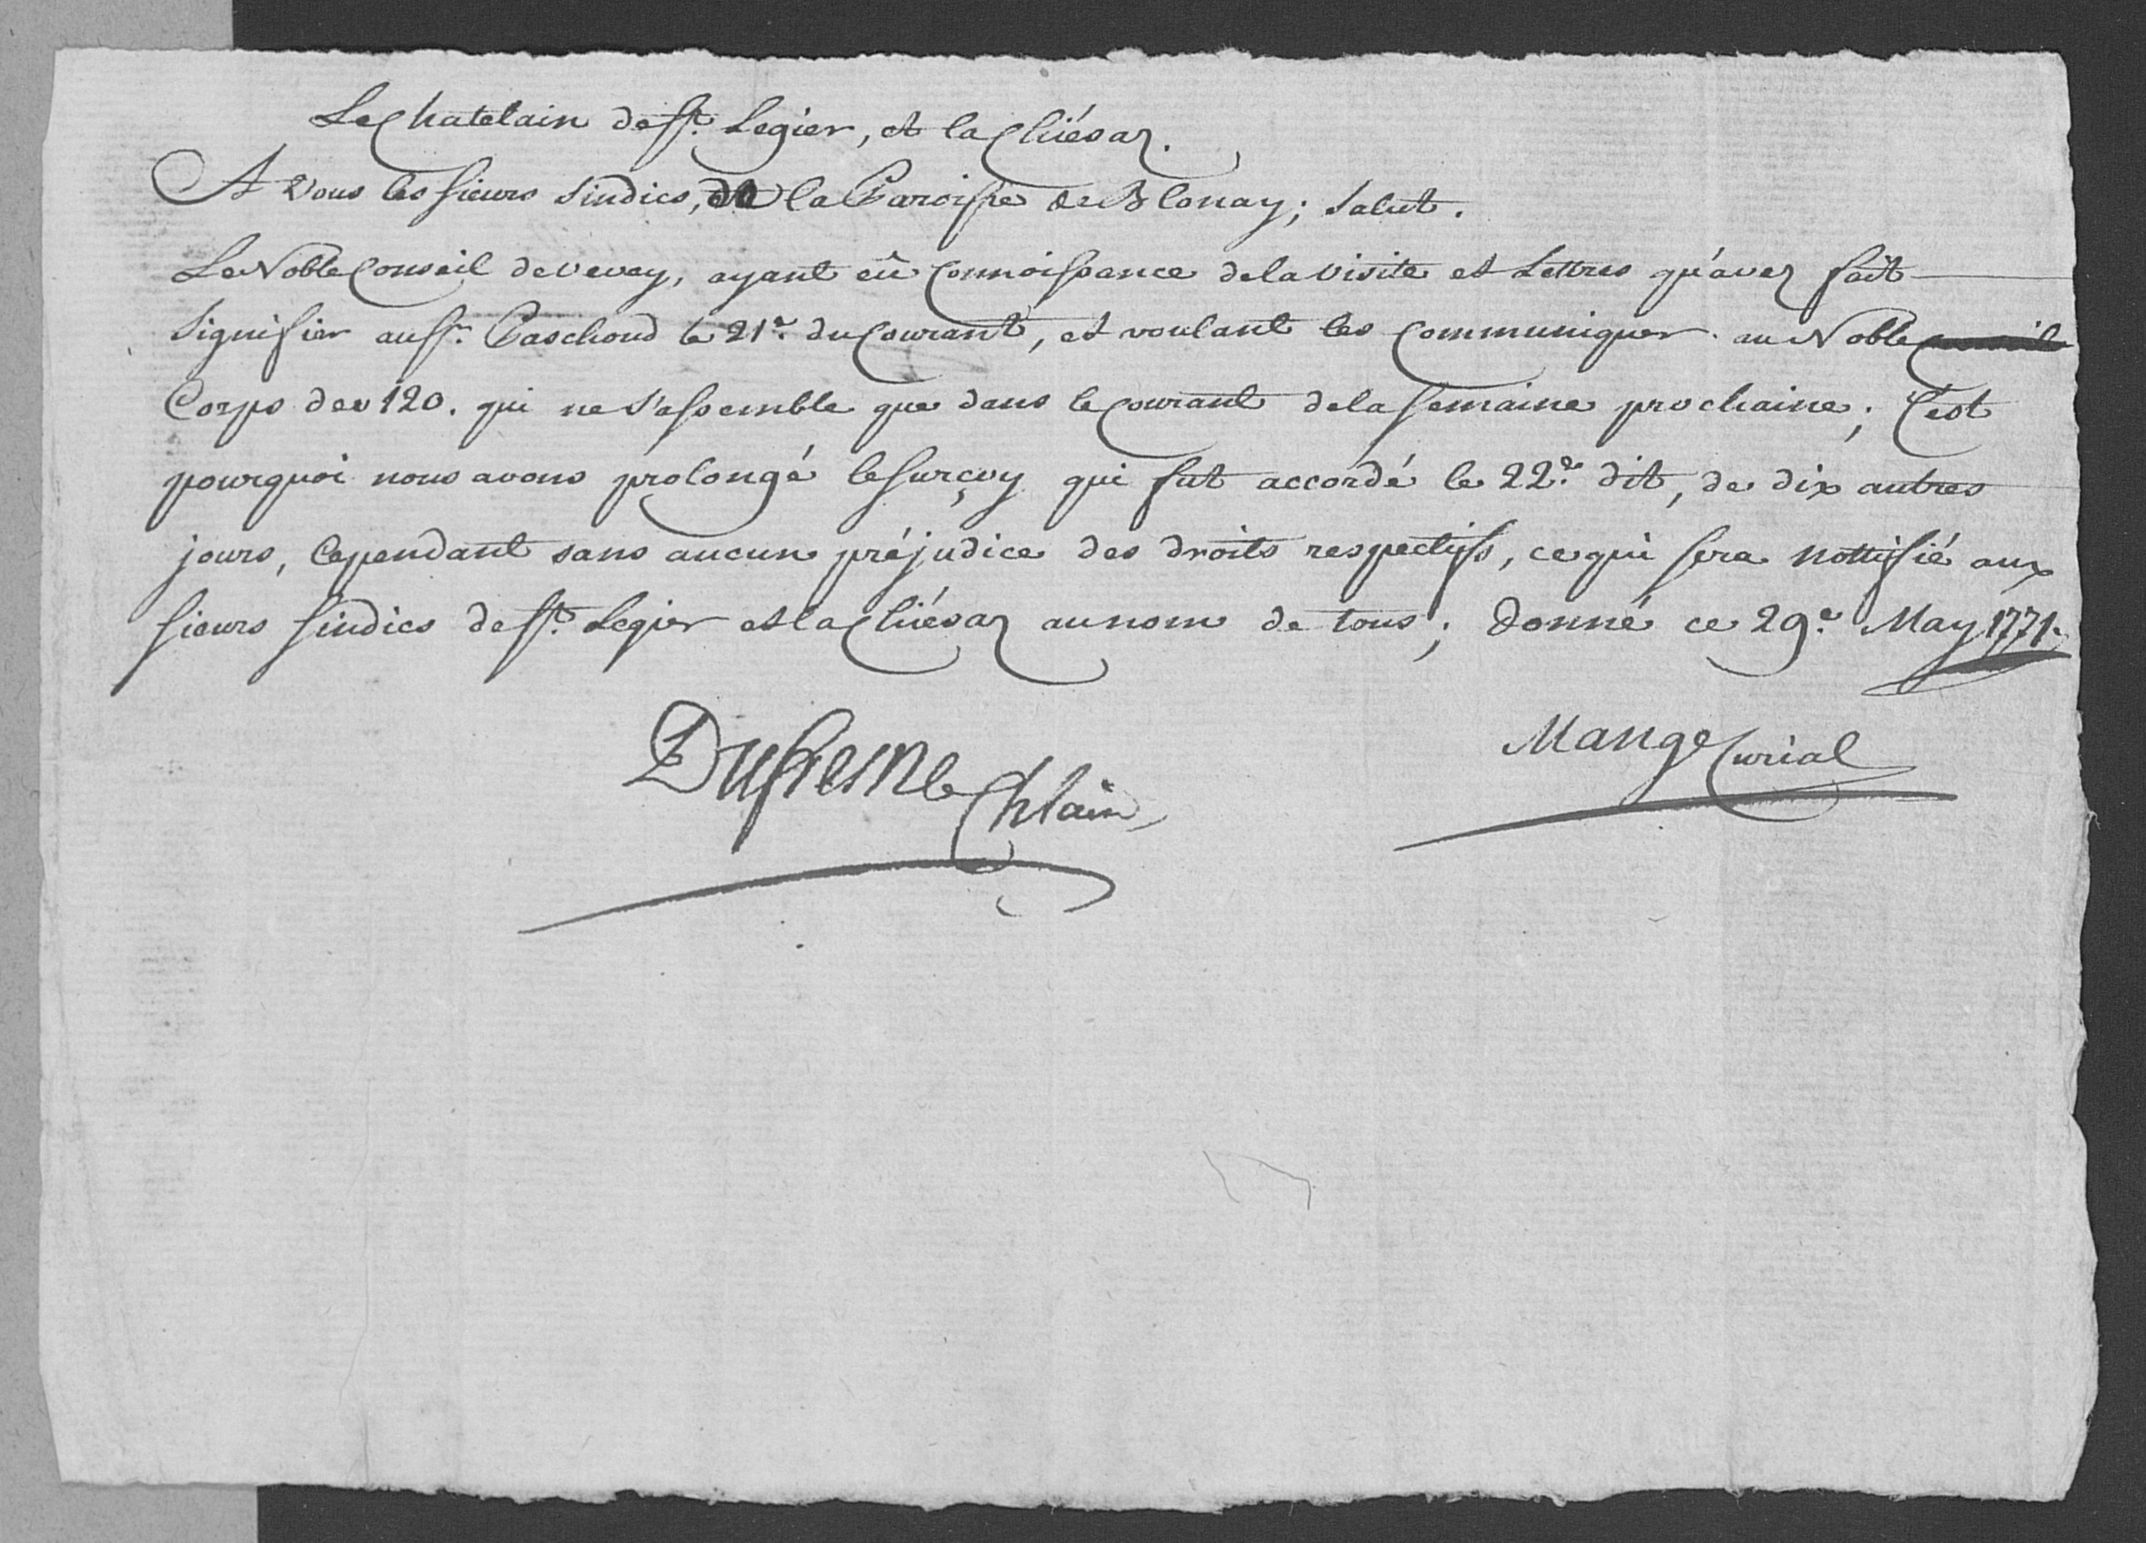 Le Chatelain de St. Legier, et la Chiésaz.
A vous les sieurs sindics, de la Paroisse de Blonay; salut.
Le Noble Conseil de vevey, ayant eû Connoissance de la visite et Lettres qu'avez fait
signifier au Sr. Paschoud le 21e. du Courant, et voulant les Communiquer au Noble
Corps des 120. qui ne s'assemble que dans le courant de la semaine prochaine; C'est
pourquoi nous avons prolongé le surçoy qui fut accordé le 22e. dit, de dix autres
jours, Cependant sans aucun préjudice des droits respectifs, ce qui sera nottifié aux
sieurs sindics de St. Legier et la Chiésaz au nom de tous; donné ce 29e. May 1771.
Dufresne Chlain
Mange Curial